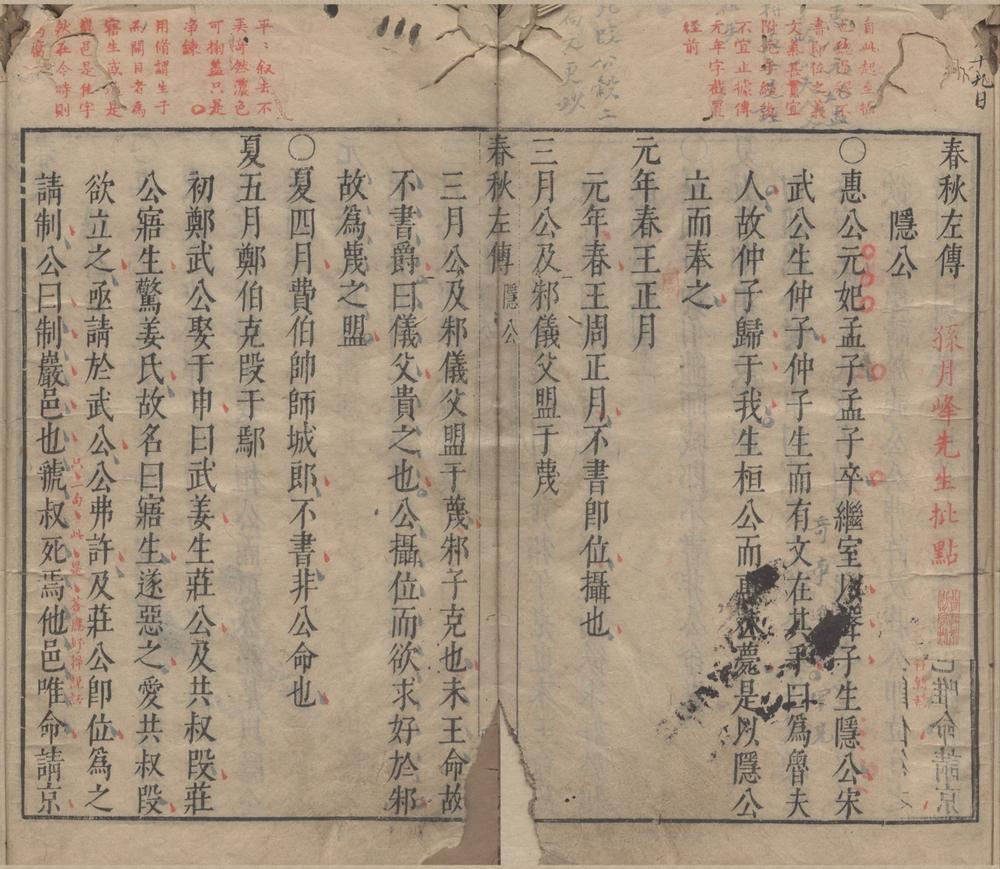 春秋左傳
隱公
孫月峰先生批點
○惠公元妃孟子孟子卒繼室以聲子生隱公宋
武公生仲子仲子生而有文在其手曰爲魯夫
人故仲子歸于我生桓公而惠公薨是以隱公
立而奉之
元年春王正月
元年春王周正月不書卽位攝也
三月公及邾儀父盟于蔑
春秋左傳 隱公
三月公及邾儀父盟于蔑邾子克也未王命故
不書爵曰儀父貴之也公攝位而欲求好於邾
故爲蔑之盟
○夏四月費伯帥師城郎不書非公命也
夏五月鄭伯克段于鄢
初鄭武公娶于申曰武姜生莊公及共叔段莊
公寤生驚姜氏故名曰寤生遂惡之愛共叔段
欲立之亟請於武公公弗許及莊公卽位爲之
請制公曰制巖邑也虢叔死焉他邑唯命請京
十九日
自此起至攝
書卽位之義
文氣甚貫宜
不宜止據傳
元年字截置
經前
平平叙去不
美泽然濃色
可掬蓋只是
净鍊
用脩謂生子
開目者爲
寤生或
巖邑是
然在今時則